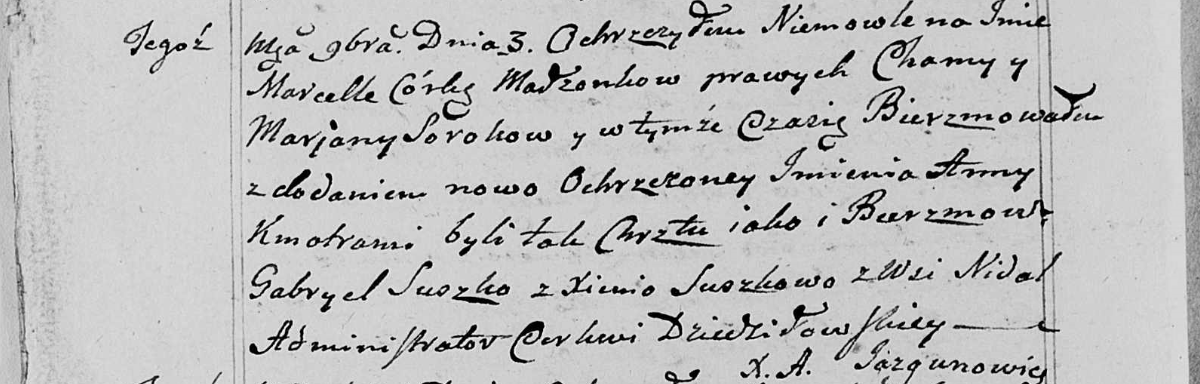 Tegoż Mca 9bra. Dnia 3. Ochrzczyłem Niemowle na Imie
Marcelle Córkę Małżonkow prawych Chomy y
Marjany Sorokow y w tymże Czasię Bierzmowałem
z dodaniem nowo Ochrzczoney Imienia Anny
Kmotrami byli tak Chrztu iako i Bierzmow:
Gabryel Suszko z Xienio Suszkowo z Wsi Nidal
Administrator Cerkwi Dziedziłowskiey
X. A. Jazgunowicz